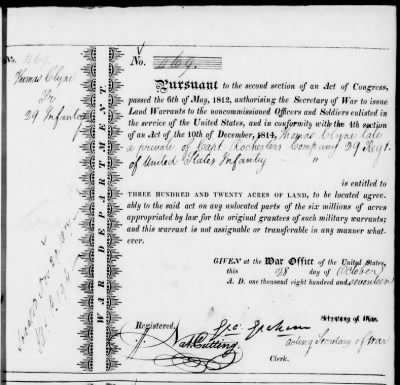 No. 469.
469.
Thomas Clyne
Pr
29 Infantry
WAR DEPARTMENT.
Pursuant to the second section of an Act of Congress,
passed the 6th of May, 1812, authorising the Secretary of War to issue
Land Warrants to the noncommissioned Officers and Soldiers enlisted in
the service of the United States, and in conformity with the 4th section
of an Act of the 10th of December, 1814, Thomas Clyne late
a private of Capt Rochesters Company 29 Regt.
of United States Infantry "
is entitled to
THREE HUNDRED AND TWENTY ACRES OF LAND, to be located agree-
ably to the said act on any unlocated parts of the six millions of acres
appropriated by law for the original grantees of such military warrants;
and this warrant is not assignable or transferable in any manner what-
ever.
GIVEN at the War Office of the United States,
this 28 day of October
A. D. one thousand eight hundred and seventeen
Secretary of War.
Geo: Graham
acting Secretary of War
Registered,
Nat Cutting
Clerk.